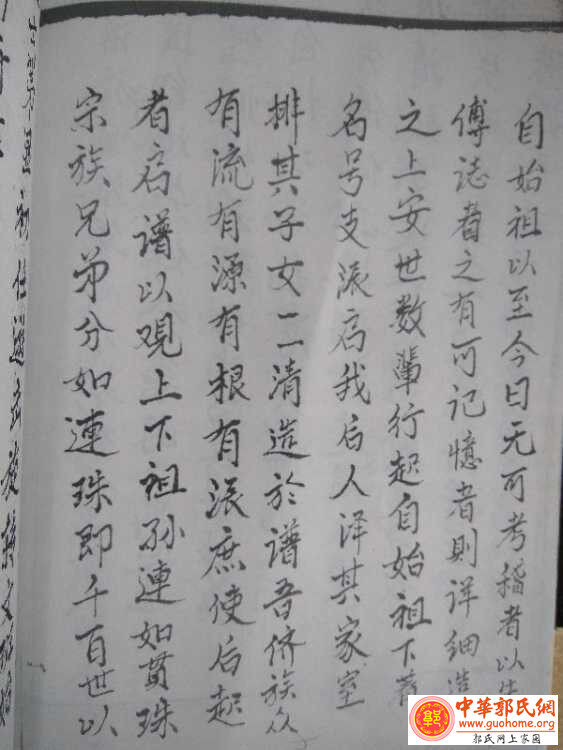 自始祖以至今日无可考稽者以
傅誌者之有可记憶者則详细造
之上安世数輩行起自始祖下
名号支派启我后人详其家室
排其子女一一清造於谱吾侪族众
有流有源有根有派庶使后起
者启谱以观上下祖孙連如貫珠
宗族兄弟分如連珠即千百世以
中華郭氏網
www.guohome.org
郭氏网上家园